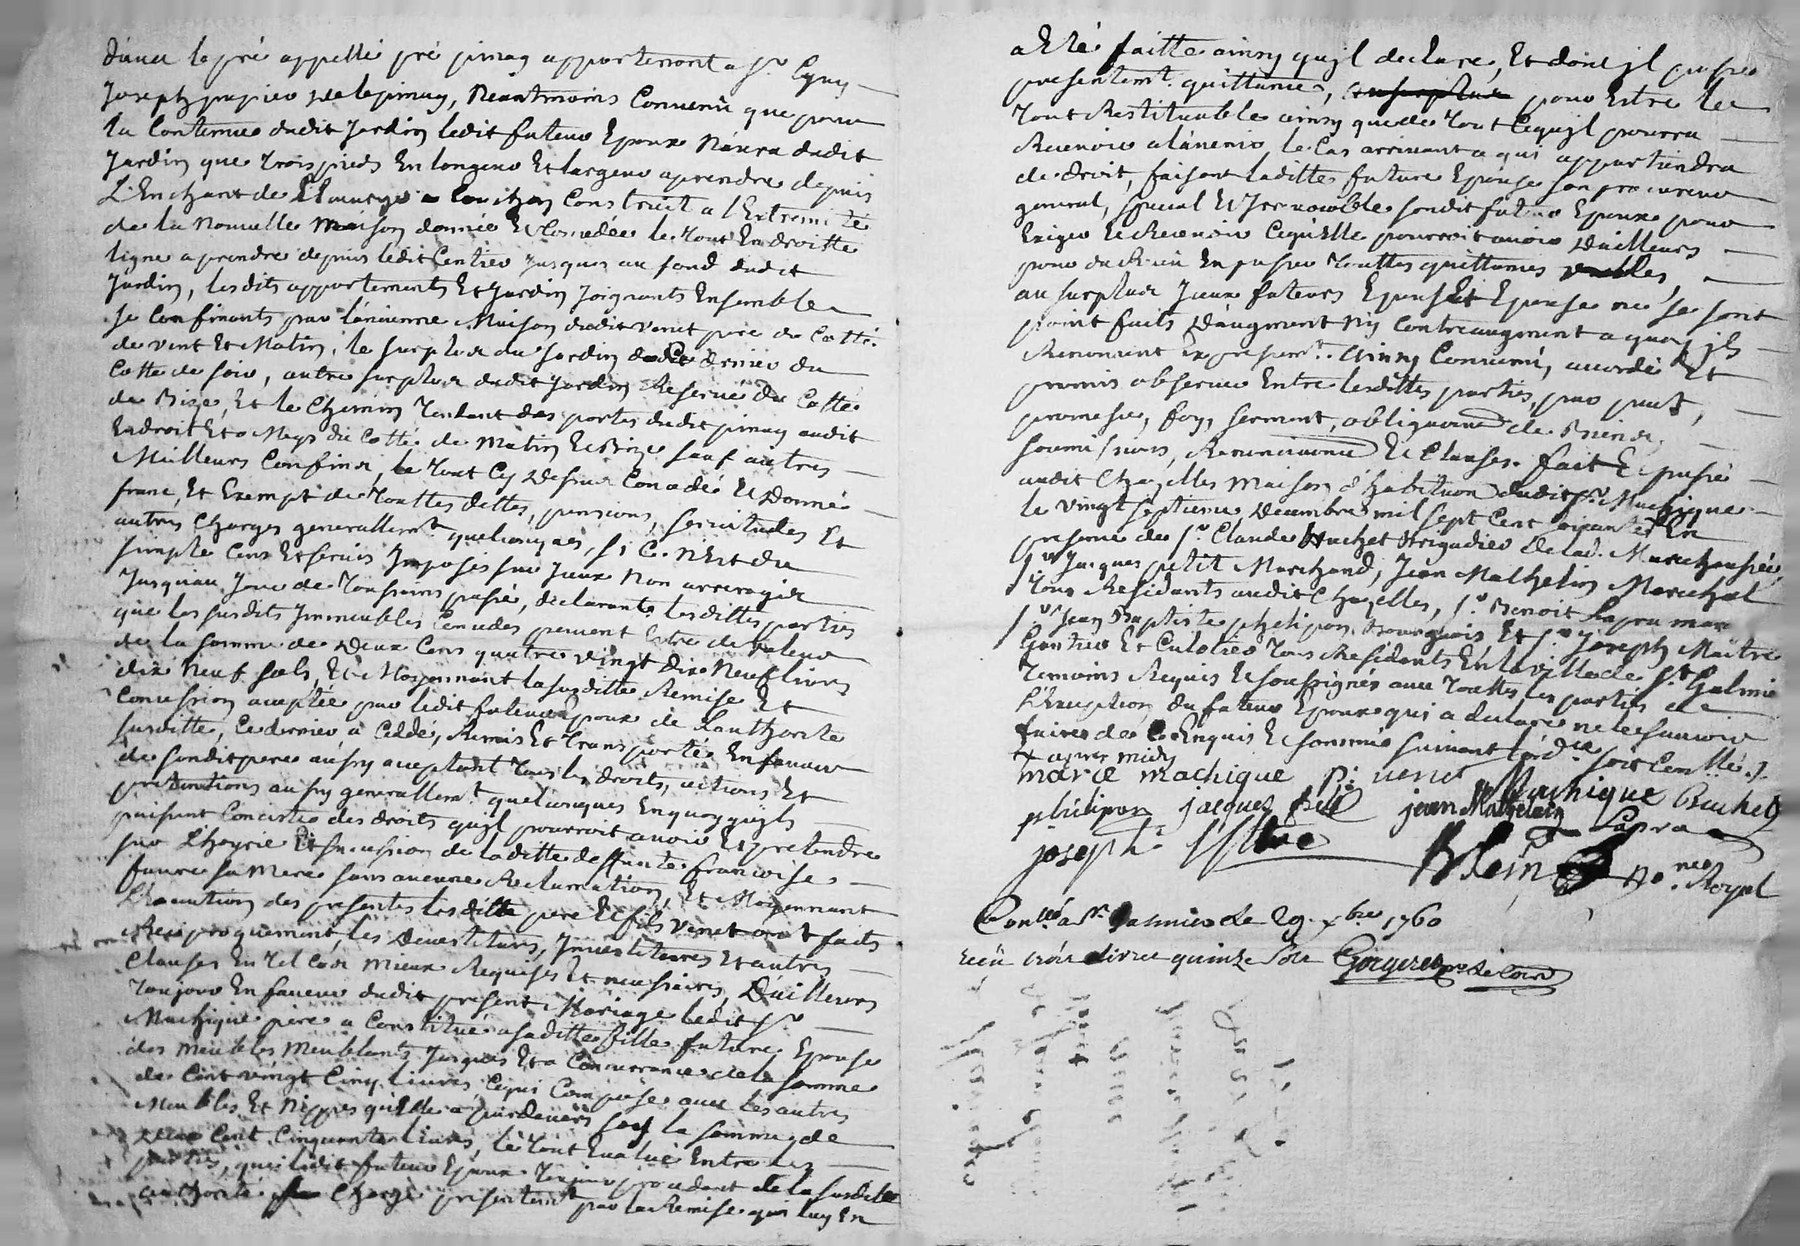 dance le pré appellé pré pinay appartenant a Sr
Joseph papieu de lepinay, Neantmoins Convenû que pour
la Contenue dudit Jardin ledit futeur Epoux N'aura dudit
Jardin que trois pieds En longeur Et largeur aprendre depuis
L'Enchant de construit a l'Extremité
de la Nouvelle Maison donnée Et Concedée le tout En droitte
ligne aprendre depuis ledit jusques au fond dudit
Jardin, lesdits appartements Et Jardin Joignants Ensemble
se Confinants par l'ancienne Maison dudit venet pere de Cotté
de vent Et Matin, le surplus du Jardin du
Cotte de soir, autre surplus dudit Jardin Reservé du Cotté
de Bize, Et le Chemin tendant des portes dudit pinay audit
Endroit Et a Meys du Cotté de Matin Et Bize sauf autres
Meilleurs Confins, le tout Cy dessus Concedé Et Donné
franc, Et Exempt de touttes dettes, pensions, servitudes Et
autres Charges generallemt quelconques, si Ce N'Est du
simple Cens Et servis Imposés sur Iceux Non arreragés
Jusqu'au Jour de Toussains passé, déclarants lesdittes parties
que les susdits Immeubles Concedés peuvent Estre de valeur
de la somme de Deux Cens quatre vingt dix Neuf livres
dix neuf sols, Et Moyennant la susditte Remise Et
Concession acceptée par ledit futeur Epoux de L'authorité
susditte, Ce dernier, a Ceddé, Remis Et transporté En faveur
de sondit pere aussy acceptant tous les droits, actions Et
prétentions aussy generallemt quelconques En quoy qu'ils
puissent Concister des droits qu'jl pourroit avoir Et pretendre
sur L'hoyrie Et succession de laditte deffunte francoise
faure sa Mere sans aucune Reclamation, Et Moyennant
L'Execution des presentes lesditte pere Et fils venet ont faits
Reciproquement, les Devestitures, Investitures Et autres
Clauses En tel Cas Mieux Requises Et necessaires, D'ailleurs
toujour En faveur dudit present Mariage ledit Sr
Machique pere a Constitué a saditte fille future Epouse
des Meubles Meublants jusques Et a Concurrance de la somme
de Cent vingt Cinq livres, Cequi Compose avec les autres
Meubles Et Nippes qu'elle a pardevers soy la somme de
deux Cent Cinquante livres, le tout Evalué Entre les
parties, que ledit futeur Epoux toujour procedant de la susditte
authorité se Charge presentemt par la Remise qui luy En
a Eté faitte ainsy qu'jl declare, Et dont jl passe
presentemt quittance, pour Estre le
tout Restituable ainsy que de tout Cequ'jl pourra
Recevoir a lavenir le Cas arrivant a qui appartiendra
de droit, faisant laditte future Epouse son procureur
general, special Et Irrevocable sondit futeur Epoux pour
Exiger Et Recevoir Cequ'elle pourroit avoir D'ailleurs
pour du Receu En passer touttes quittances valables,
au surplus Iceux futeurs Epoux Et Epouse ne se sont
point faits D'augment Ny Contreaugment a quoy jls
Renoncent Expressemt. Ainsy Convenû, accordé Et
promis observer Entre lesdittes parties, par pact,
promesse, foy, serment, obligations de Biens,
soumissions, Renonciations Et Clauses. fait Et passé
audit Chazelles Maison d'habitation dudit Sr Machique
le vingt septieme Decembre mil sept Cent soixante En
presence de Sr Claude Brigadier de la Marechaussée,
Sr Jacques petit Marchand, Jean Mathelin Marechal
tous Residants audit Chazelles, Sr Benoit Lapra
Sr Jean Baptiste phelipon Bourgeois Et Sr Joseph Maitre
Gantier Et Culotier tous Residants En la ville de St Galmier
temoins Requis Et soussignés avec touttes les parties a
L'Exception du futeur Epoux qui a declaré ne le sauvoir
faire de Ce Enquis Et sommé suivant lordce soit Contllé.
+ apres midy
marie machique p: venet Machique Buchet
phelipon jacques petit jean Mathelin Lapra
joseph
Blein Nore Royal
Conlle a St Galmier le 29. xbre 1760
reçû trois livres quinze sols